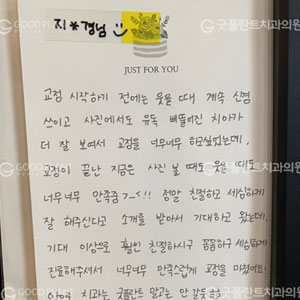 굿플란트치과의원
지*경님
JUST FOR YOU
교정 시작하기 전에는 웃을 때 계속 신경
쓰이고 사진에서도 유독 삐뚤어진 치아가
더 잘 보여서 교정을 너무너무 하고싶었는데,
교정이 끝난 지금은 사진 볼 때도 웃을 때도
너무너무 만족중 ㄱ-<!! 정말 친절하고 세심하게
잘 해주신다고 소개를 받아서 기대하고 왔는데,
기대 이상으로 훨씬 친절하시구 꼼꼼하구 세심하게
진료해주셔서 너무너무 만족스럽게 교정을 마쳤어요!
치과는 굿플란트 말고는 안